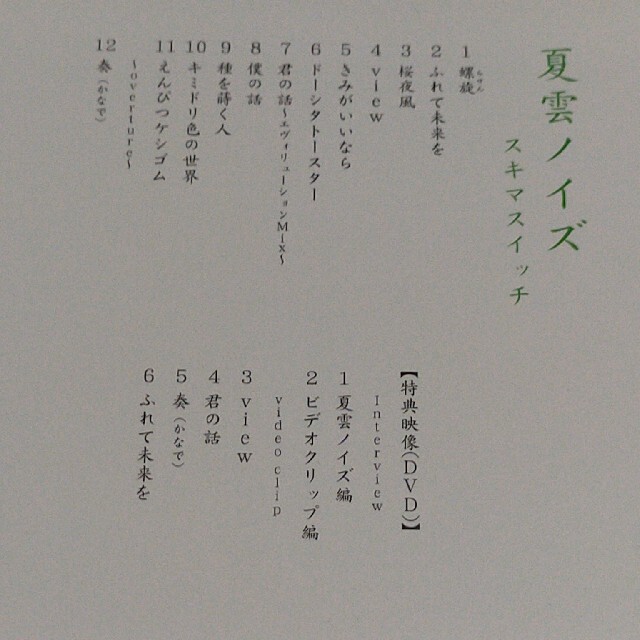 夏雲ノイズ
スキマスイッチ
1 螺旋
らせん
2 ふれて未来を
3 桜夜風
4 view
5 きみがいいなら
6 ドーシタトースター
7 君の話〜エヴォリューションMix〜
8 僕の話
9 種を蒔く人
10 キミドリ色の世界
11 えんぴつケシゴム
〜overture〜
12 奏(かなで)
【特典映像(DVD)】
Interview
1 夏雲ノイズ編
2 ビデオクリップ編
video clip
3 view
4 君の話
5 奏(かなで)
6 ふれて未来を